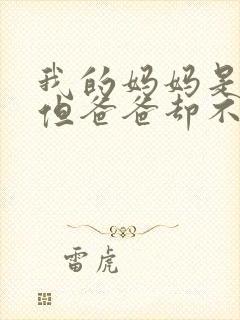 我的妈妈是
但爸爸却不
雷虎